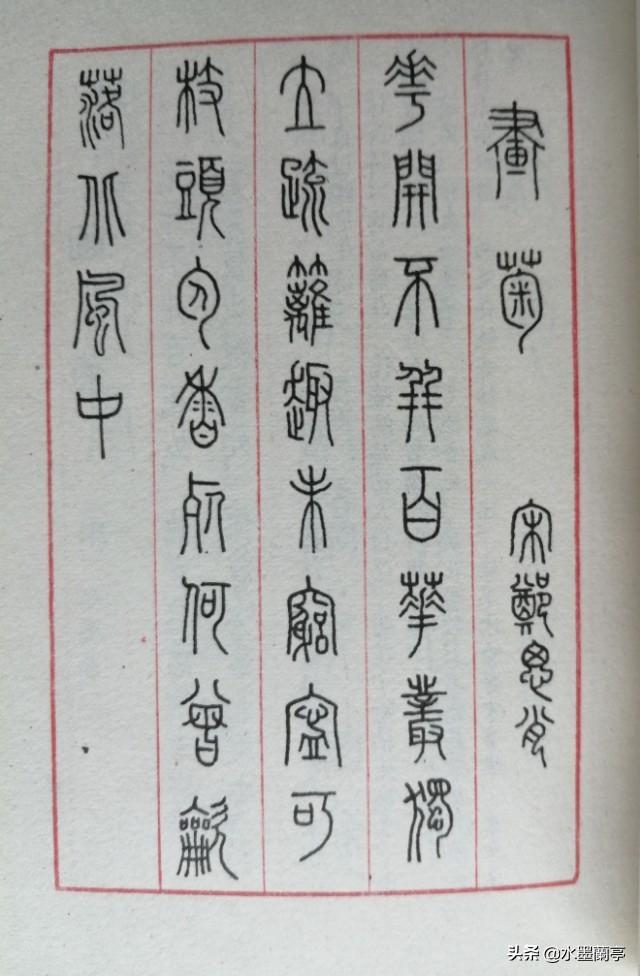 畫菊 宋鄭思肖
花開不并百華叢獨
立疏籬趣未窮寧可
枝頭包香死何曾龡
落北風中
头条 @水墨蘭亭